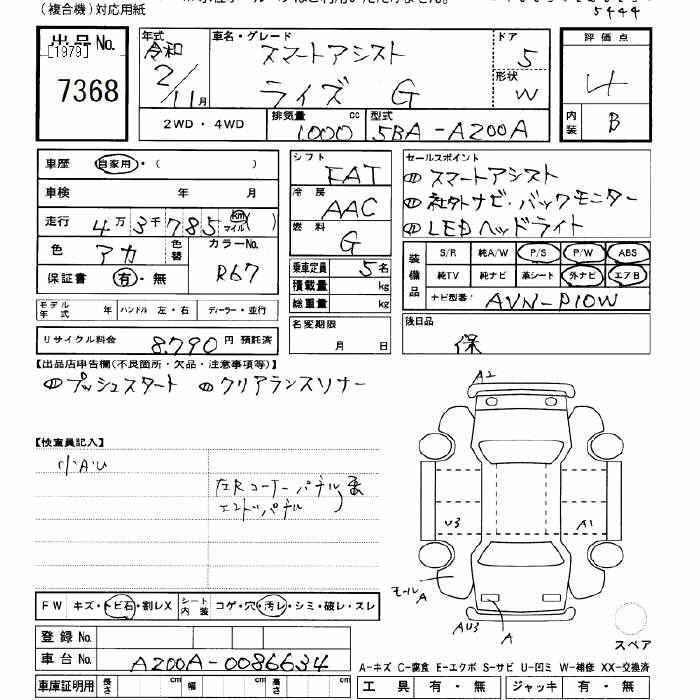 (複合機)対応用紙
5444
出品No.
[1979]
7368
年式 令和
2/11月
車名・グレード スマートアシスト
ライズ G
ドア 5
形状 W
評価点 4
内装 B
2WD・4WD
排気量 1000 cc
型式 5BA-A200A
車歴 自家用・( )
車検 年 月
走行 4万3千785 km マイル( )
色 アカ 色替
カラーNo. R67
保証書 有・無
シフト FAT
冷房 AAC
燃料 G
乗車定員 5名
積載量 kg
総重量 kg
セールスポイント
① スマートアシスト
② 社外ナビ・バックモニター
③ LEDヘッドライト
装備品
S/R 純A/W P/S P/W ABS
純TV 純ナビ 革シート 外ナビ エアB
ナビ型番: AVN-P10W
モデル年式 年 ハンドル 左・右 ディーラー・並行
名変期限
月 日
後日品
保
リサイクル料金 8,790 円 預託済
【出品店申告欄(不良箇所・欠品・注意事項等)】
① プッシュスタート ② クリアランスソナー
【検査員記入】
小AU
左Rコーナーパネル
エンドパネル
A2
U3
A1
モールA
AU3
A
スペア
FW キズ・トビ石・割レX
シート内装 コゲ・穴・汚レ・シミ・破レ・スレ
登録No.
車台No. A200A-0086634
車庫証明用 長さ cm 幅 cm 高さ cm
A-キズ C-腐食 E-エクボ S-サビ U-凹ミ W-補修 XX-交換済
工具 有・無 ジャッキ 有・無